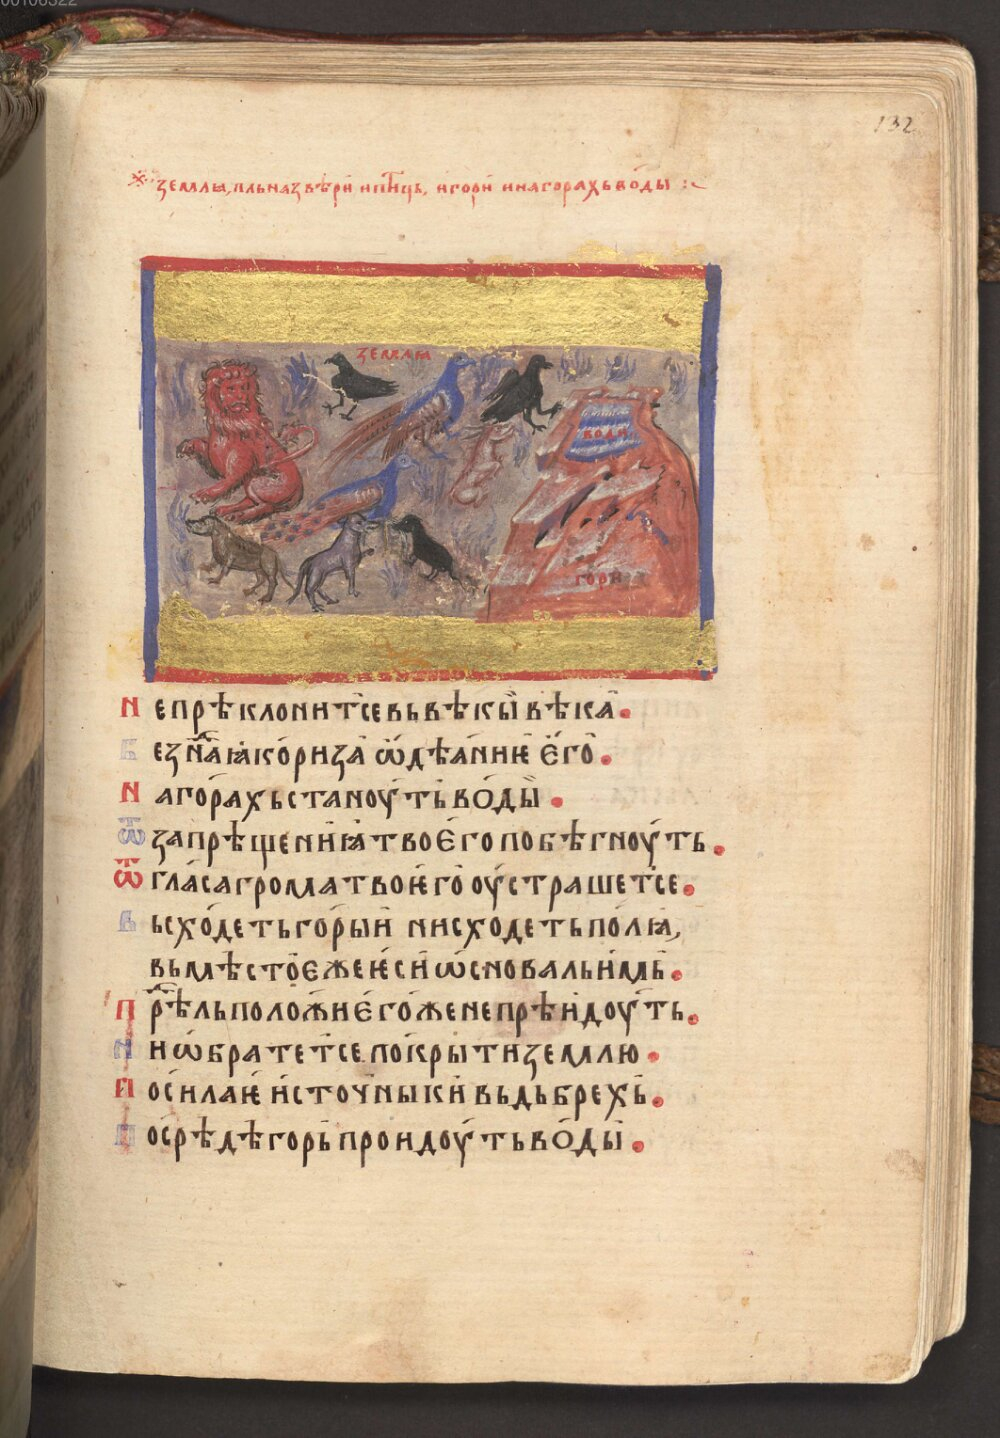 00106322
132
землꙗ, пльна звѣри и птиць, и гори и на горахь води
землꙗ
вода
гори
Не прѣклонит се вь вѣкы вѣка.
Безⷣна ꙗко риза ѡдѣаниѥ его.
На горахь стануть воды.
Ѿ запрѣщениꙗ твоего побѣгнуть.
Ѿ гласа грома твоѥго устрашет се.
Вьсходеть горы и нисходеть полꙗ,
вь мѣсто еже ѥси ѡсноваль имь.
Прѣⷣль положи егоже не прѣидуть.
Ни ѡбратет се покрыти землю.
Посилаѥ источныки вь дьбрехь.
Посрѣдѣ горь проидуть воды.